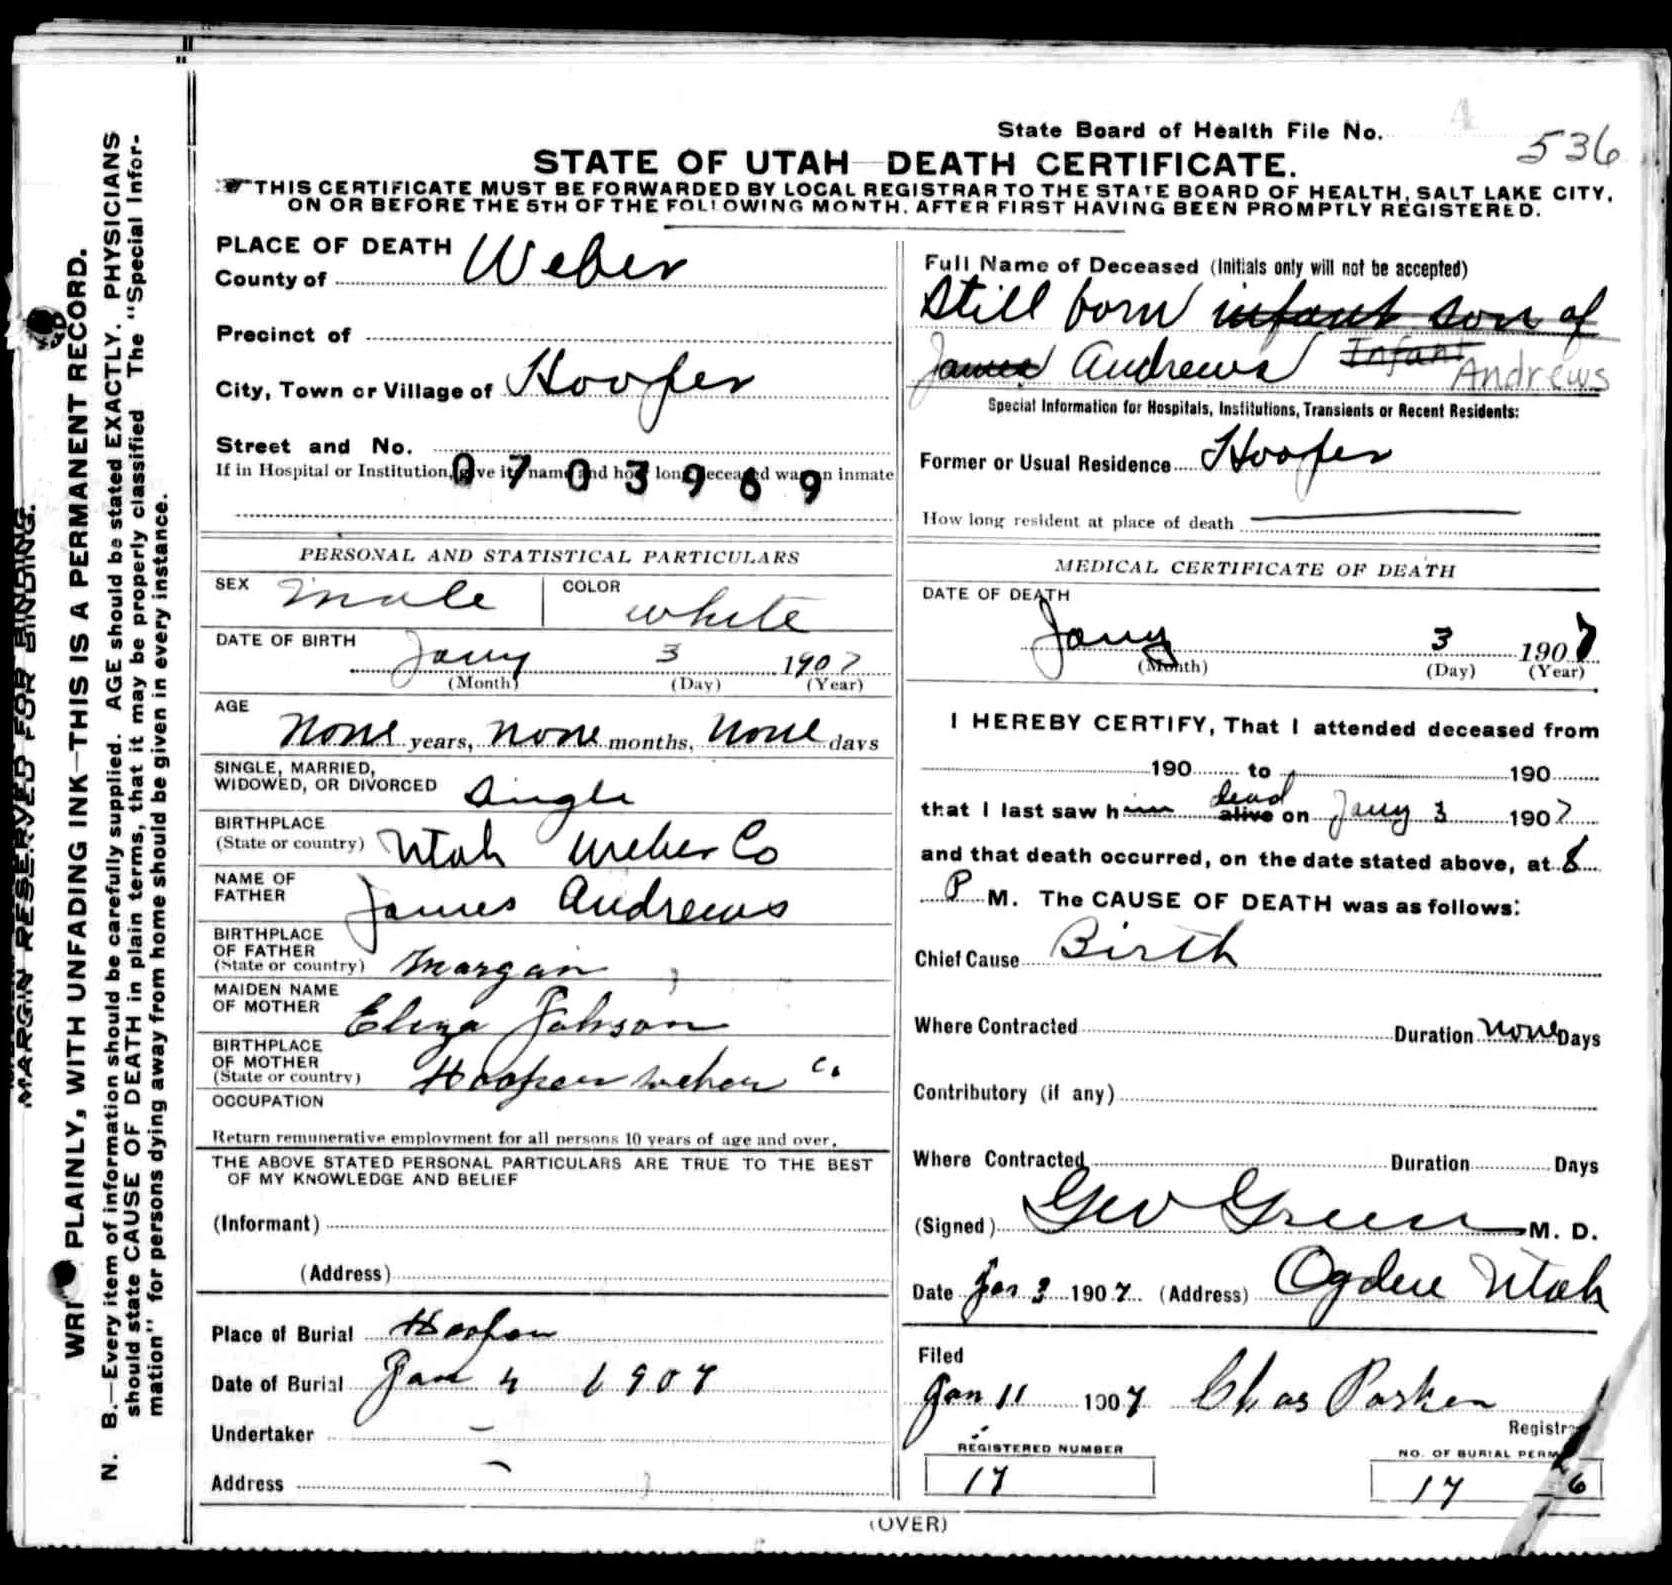 State Board of Health File No. 536
STATE OF UTAH—DEATH CERTIFICATE.
THIS CERTIFICATE MUST BE FORWARDED BY LOCAL REGISTRAR TO THE STATE BOARD OF HEALTH, SALT LAKE CITY,
ON OR BEFORE THE 5TH OF THE FOLLOWING MONTH. AFTER FIRST HAVING BEEN PROMPTLY REGISTERED.
PLACE OF DEATH
County of Weber
Precinct of
City, Town or Village of Hooper
Street and No.
If in Hospital or Institution, give its name and how long deceased was an inmate
0703969
PERSONAL AND STATISTICAL PARTICULARS
SEX male COLOR white
DATE OF BIRTH Jany 3 1907
(Month) (Day) (Year)
AGE
None years, none months, none days
SINGLE, MARRIED,
WIDOWED, OR DIVORCED Single
BIRTHPLACE
(State or country) Utah Weber Co
NAME OF
FATHER James Andrews
BIRTHPLACE
OF FATHER
(State or country) Morgan
MAIDEN NAME
OF MOTHER Eliza Johson
BIRTHPLACE
OF MOTHER
(State or country) Hooper Weber Co
OCCUPATION
Return remunerative employment for all persons 10 years of age and over.
THE ABOVE STATED PERSONAL PARTICULARS ARE TRUE TO THE BEST
OF MY KNOWLEDGE AND BELIEF
(Informant)
(Address)
Place of Burial Hooper
Date of Burial Jan 4 1907
Undertaker –
Address –
Full Name of Deceased (Initials only will not be accepted)
Still born infant son of
James Andrews Infant Andrews
Special Information for Hospitals, Institutions, Transients or Recent Residents:
Former or Usual Residence Hooper
How long resident at place of death
MEDICAL CERTIFICATE OF DEATH
DATE OF DEATH
Jany 3 1907
(Month) (Day) (Year)
I HEREBY CERTIFY, That I attended deceased from
190 to 190
that I last saw him alive dead on Jany 3 1907
and that death occurred, on the date stated above, at 8
P M. The CAUSE OF DEATH was as follows:
Chief Cause Birth
Where Contracted Duration none Days
Contributory (if any)
Where Contracted Duration Days
(Signed) Geo Green M. D.
Date Jan 3 1907 (Address) Ogden Utah
Filed
Jan 11 1907 Chas Parker
Registrar
REGISTERED NUMBER
17
NO. OF BURIAL PERM
17 6
(OVER)
MARGIN RESERVED FOR BINDING.
WRI PLAINLY, WITH UNFADING INK—THIS IS A PERMANENT RECORD.
N. B.—Every item of information should be carefully supplied. AGE should be stated EXACTLY. PHYSICIANS
should state CAUSE OF DEATH in plain terms, that it may be properly classified The "Special Infor-
mation" for persons dying away from home should be given in every instance.